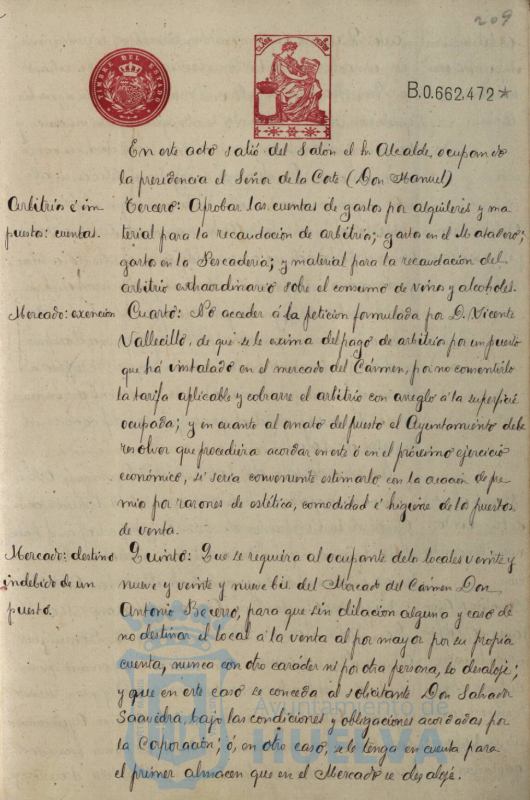 209
TIMBRE DEL ESTADO
B.0.662,472*
En este acto salió del Salón el Sr. Alcalde, ocupando
la presidencia el Señor de la Corte (Don Manuel)
Arbitrios é im
puestos: cuentas.
Tercero: Aprobar las cuentas de gastos por alquileres y ma-
terial para la recaudación de arbitrios; gastos en el Matadero;
gastos en la Pescadería; y material para la recaudación del
arbitrio extraordinario sobre el consumo de vinos y alcoholes.
Mercado: exención
Cuarto: No acceder á la petición formulada por D. Vicente
Vallecillo, de que se le exima del pago de arbitrio por un puesto
que há instalado en el mercado del Cármen, por no consentirlo
la tarifa aplicable y cobrarse el arbitrio con arreglo á la superficie
ocupada; y en cuanto al ornato del puesto el Ayuntamiento debe
resolver que procediera acordar en este ó en el próximo ejercicio
económico, si sería conveniente estimarlo con la acción de pre-
mio por razones de estética, comodidad é higiene de los puestos
de venta.
Mercado: destino
indebido de un
puesto.
Quinto: Que se requiera al ocupante de los locales veinte y
nueve y veinte y nueve bis del Mercado del Cármen Don
Antonio Becerro, para que sin dilación alguna y caso de
no destinar el local á la venta al por mayor por su propia
cuenta, nunca con otro carácter ni por otra persona, lo desaloje;
y que en este caso se conceda al solicitante Don Salvador
Saavedra, bajo las condiciones y obligaciones acordadas por
la Corporación; ó, en otro caso, se le tenga en cuenta para
el primer almacen que en el Mercado se desaloje.
Ayuntamiento de
HUELVA